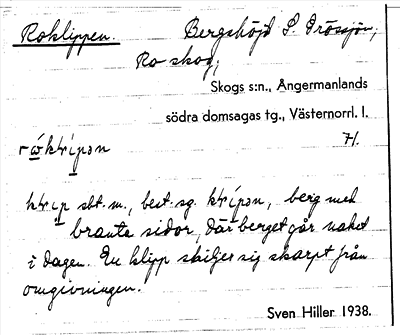 Roklippen. Bergshöjd S. Grössjön,
Ro skog,
Skogs s:n., Ångermanlands
södra domsagas tg., Västernorrl. l.
71.
ktrip sbt. m., best. sg. ktripən, berg med
branta sidor, där berget går naket
i dagen. En klipp skiljer sig skarpt från
omgivningen.
Sven Hiller 1938.